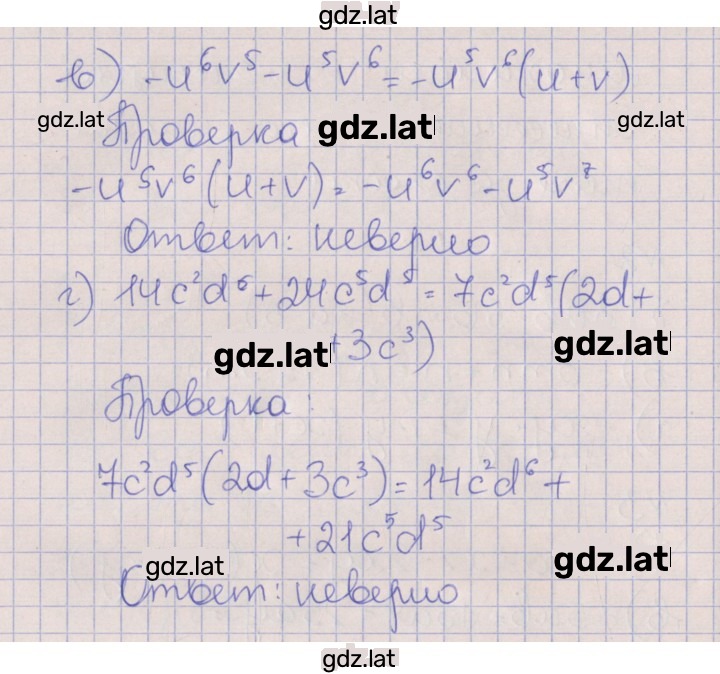 gdz.lat
в) -u⁶v⁵ - u⁵v⁶ = -u⁵v⁶(u+v)
gdz.lat Проверка gdz.lat gdz.lat
-u⁵v⁶(u+v) = -u⁶v⁶ - u⁵v⁷
Ответ: неверно
г) 14c²d⁶ + 24c⁵d⁵ = 7c²d⁵(2d+
gdz.lat +3c³) gdz.lat
Проверка:
7c²d⁵(2d+3c³) = 14c²d⁶ +
+21c⁵d⁵
gdz.lat gdz.lat
Ответ: неверно
gdz.lat